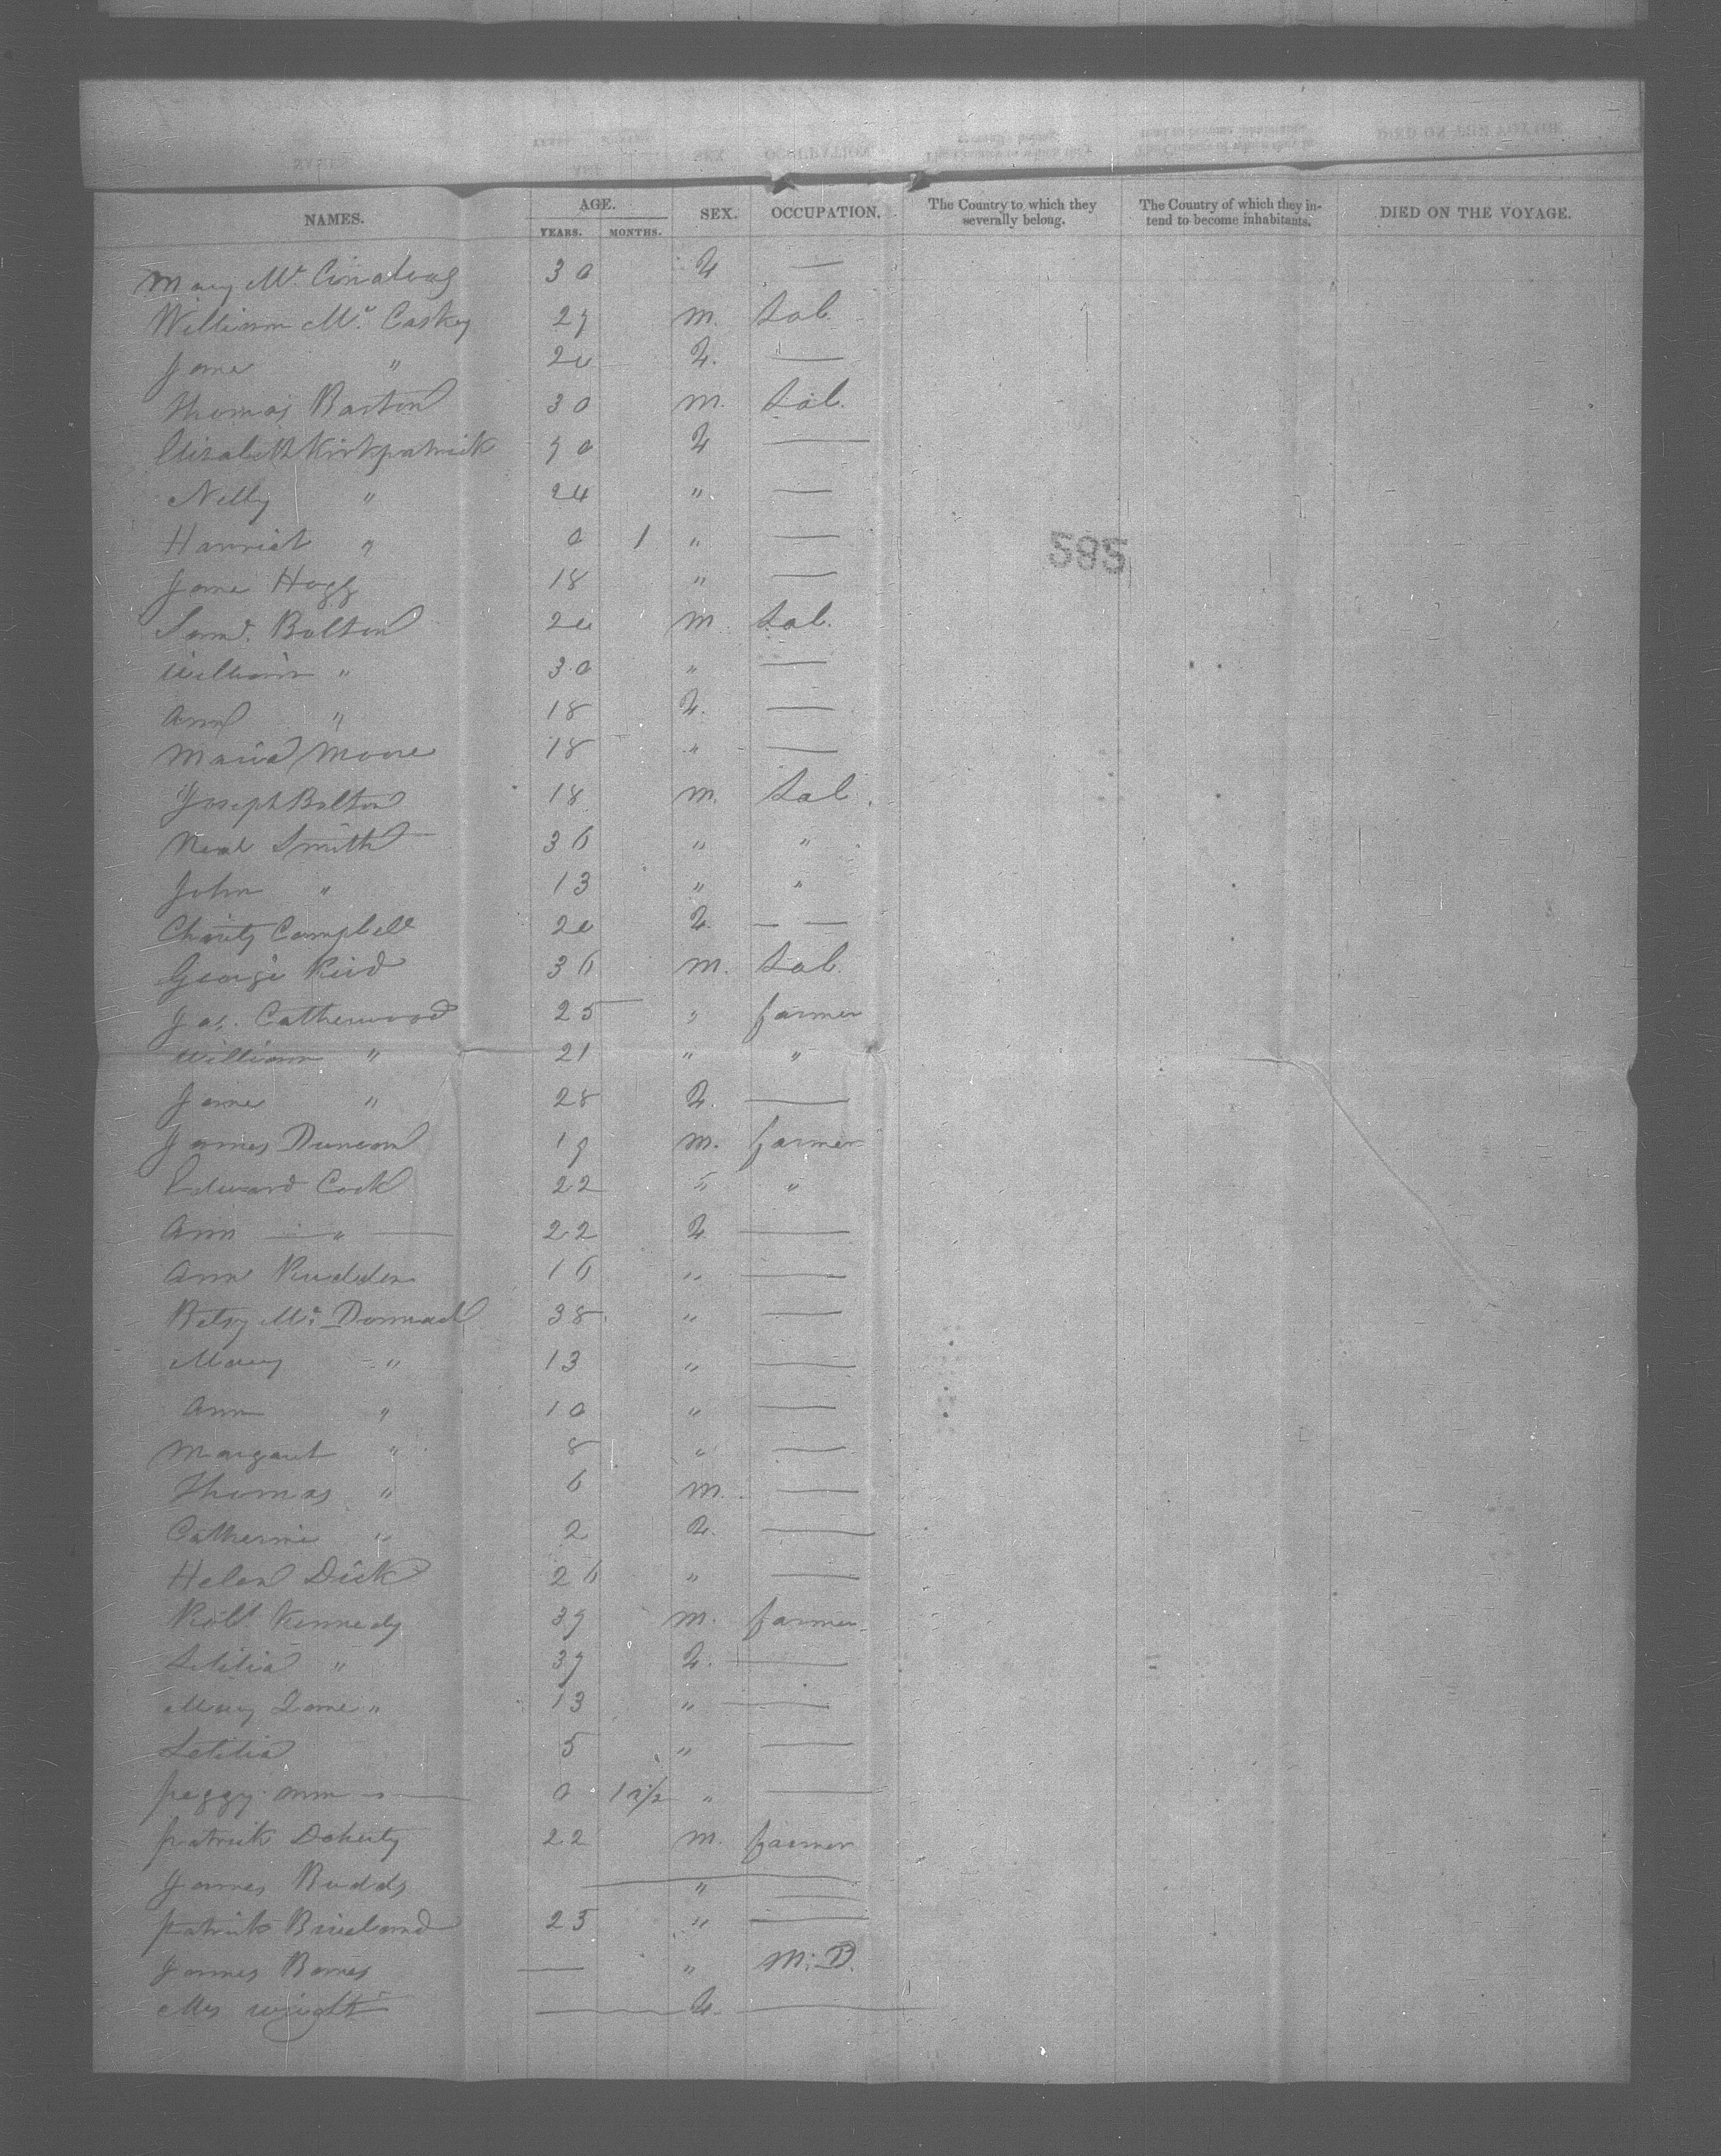 NAMES. AGE. YEARS. MONTHS. SEX. OCCUPATION. The Country to which they severally belong. The Country of which they intend to become inhabitants. DIED ON THE VOYAGE.
Mary Mc 30 F —
William Mc Caskey 27 m. Lab.
Jane " 20 F. —
Thomas Barton 30 m. Lab.
Elizabeth Kirkpatrick 70 F —
Nelly " 24 " —
Harriet " 0 1 " —
Jane Hogg 18 " —
Saml. Bolton 20 m Lab.
William " 30 " —
Ann " 18 F. —
Maria Moore 18 " —
Joseph Bolton 18 m. Lab.
Neal Smith 36 " "
John " 13 " "
Charity Campbell 20 F — —
George Reid 36 m. Lab.
Jas. Catherwood 25 " farmer
William " 21 " "
Jane " 28 F. —
James Duncan 19 m. farmer
Edward Cock 22 " "
Ann — " — 22 F —
Ann Rudden 16 " —
Betsy Mc 38 " —
Mary " 13 " —
Ann " 10 " —
Margaret " 8 " —
Thomas " 6 m. —
Catherine " 2 F. —
Helen Dick 26 " —
Robt. Kennedy 37 m. farmer
Letitia " 37 F. —
Mary Jane " 13 " —
Letitia 5 " —
peggy Ann — 0 " —
patrick Doherty 22 m. farmer
James Budds — " —
patrick 25 " —
James — " M.D.
Mrs wright — F. —
282